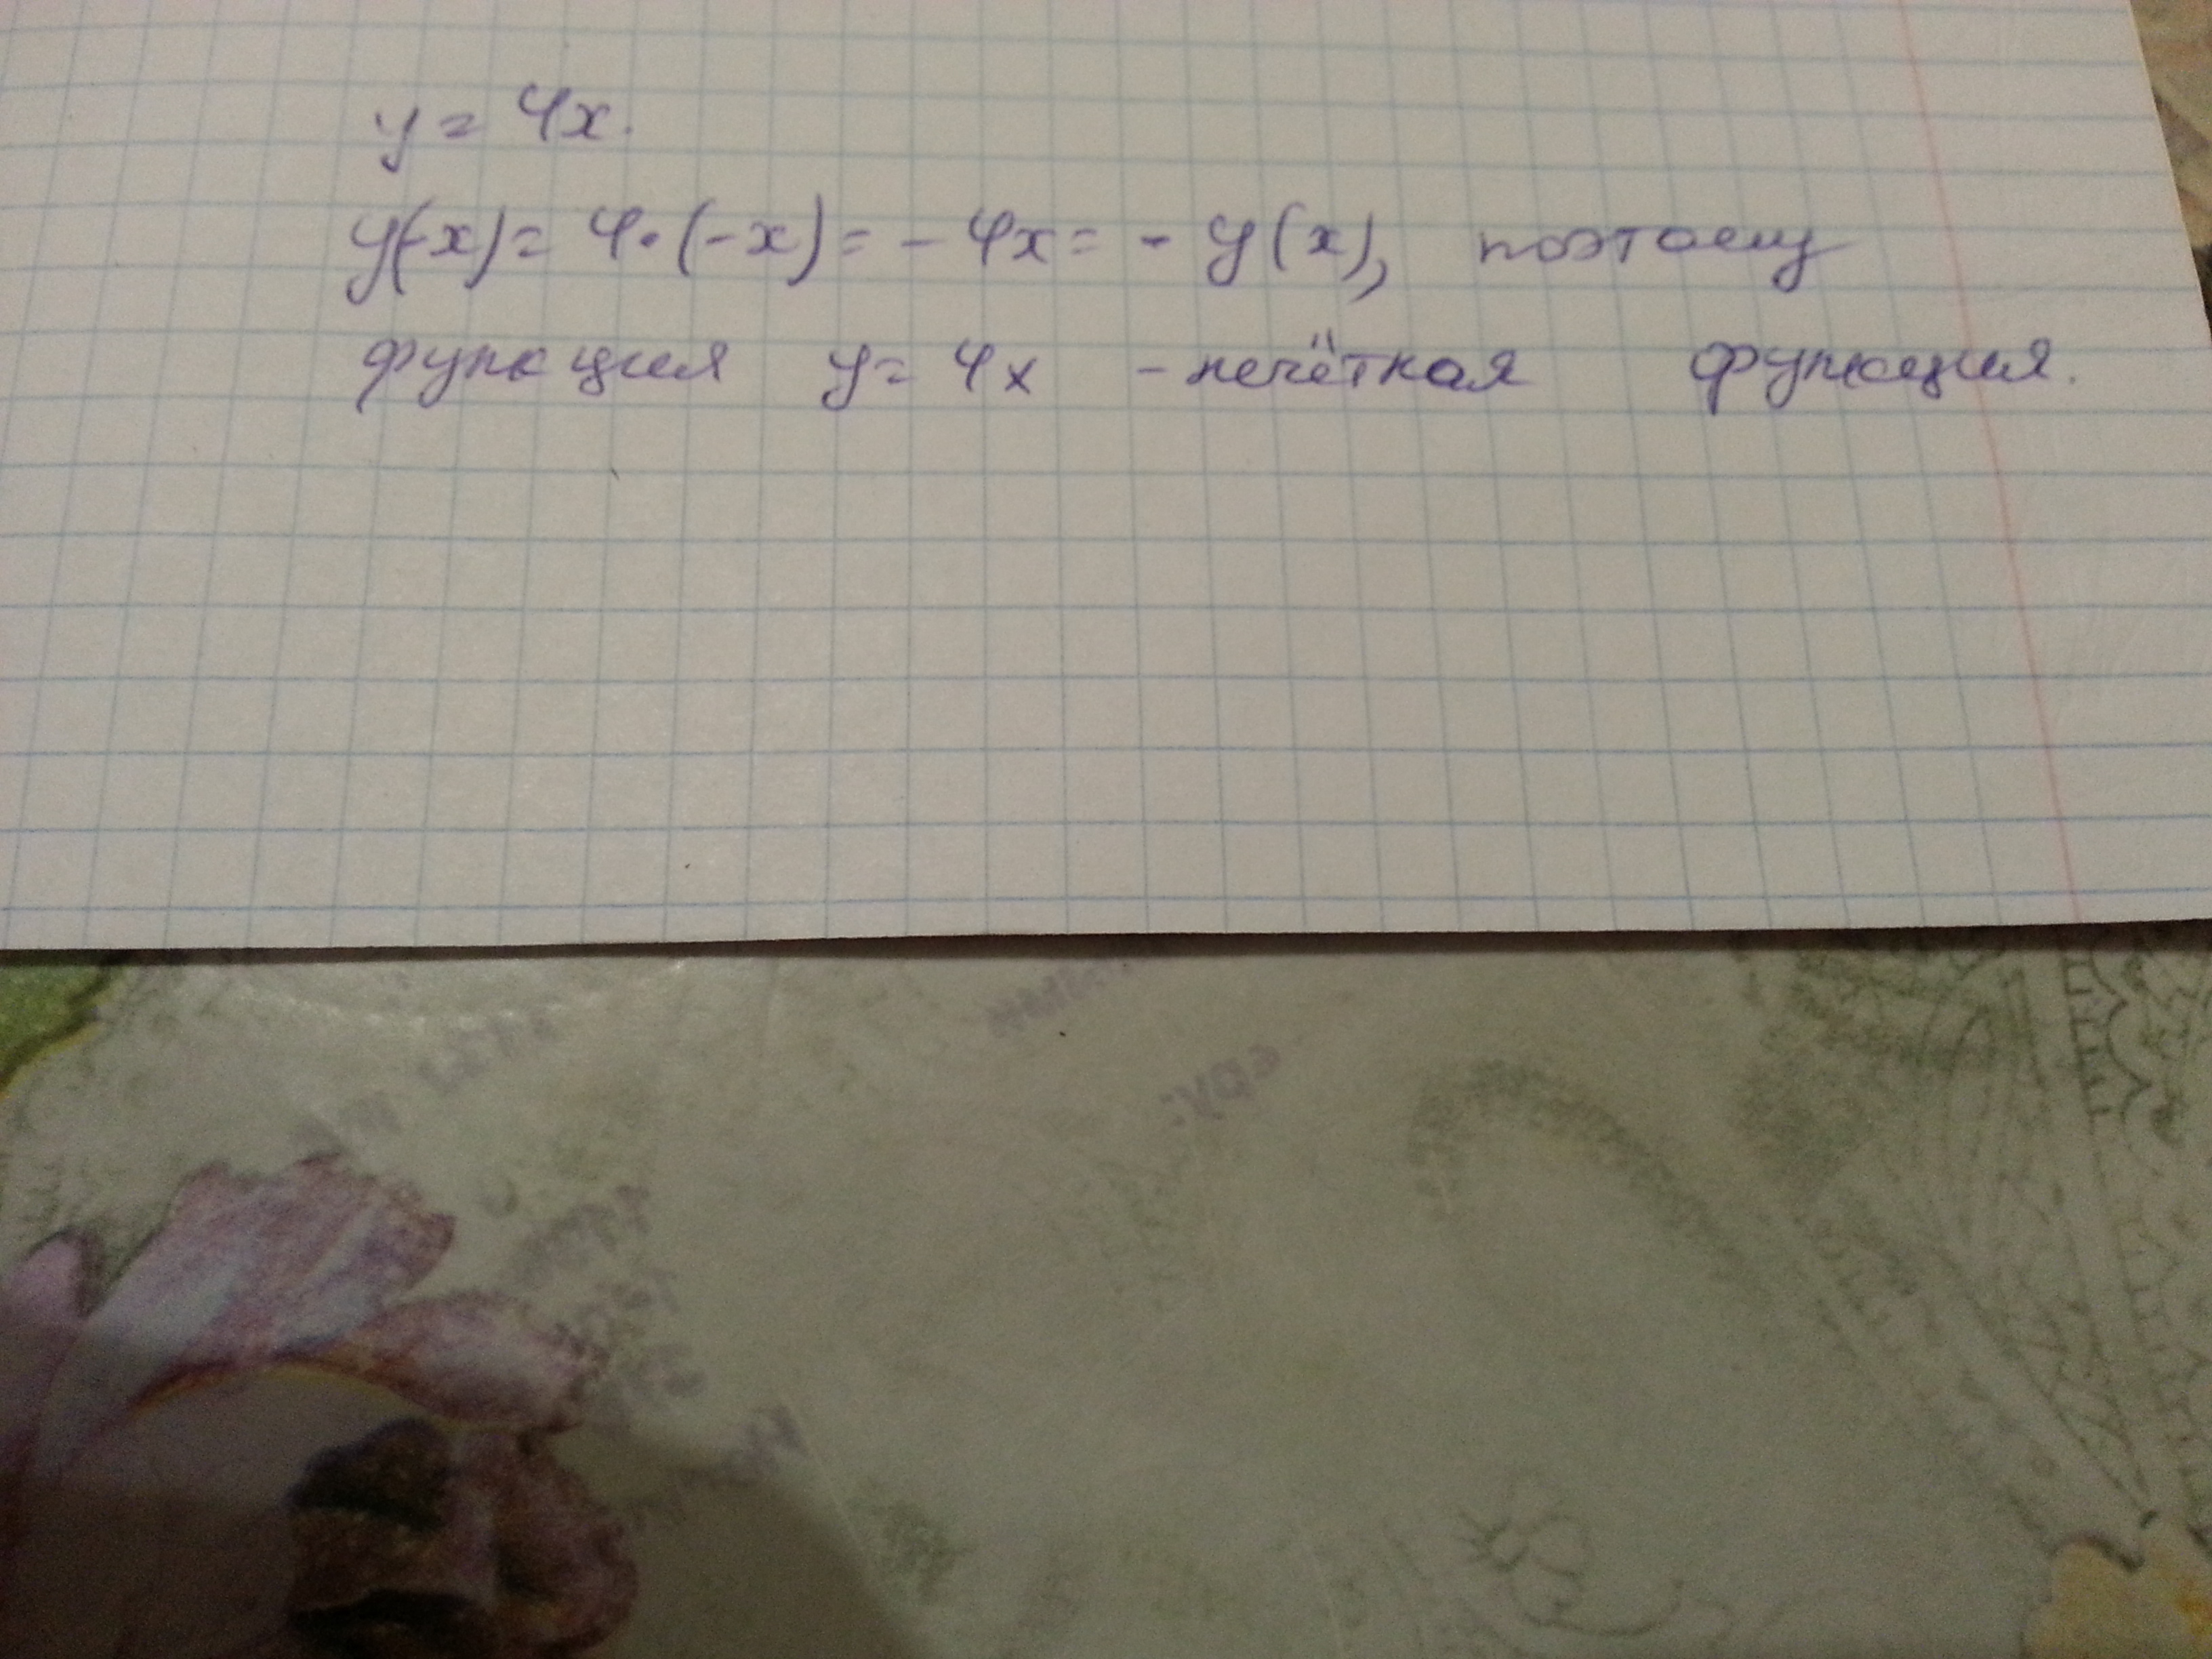 y = 4x.
y(-x) = 4·(-x) = - 4x = - y(x), поэтому
функция y = 4x - нечётная функция.